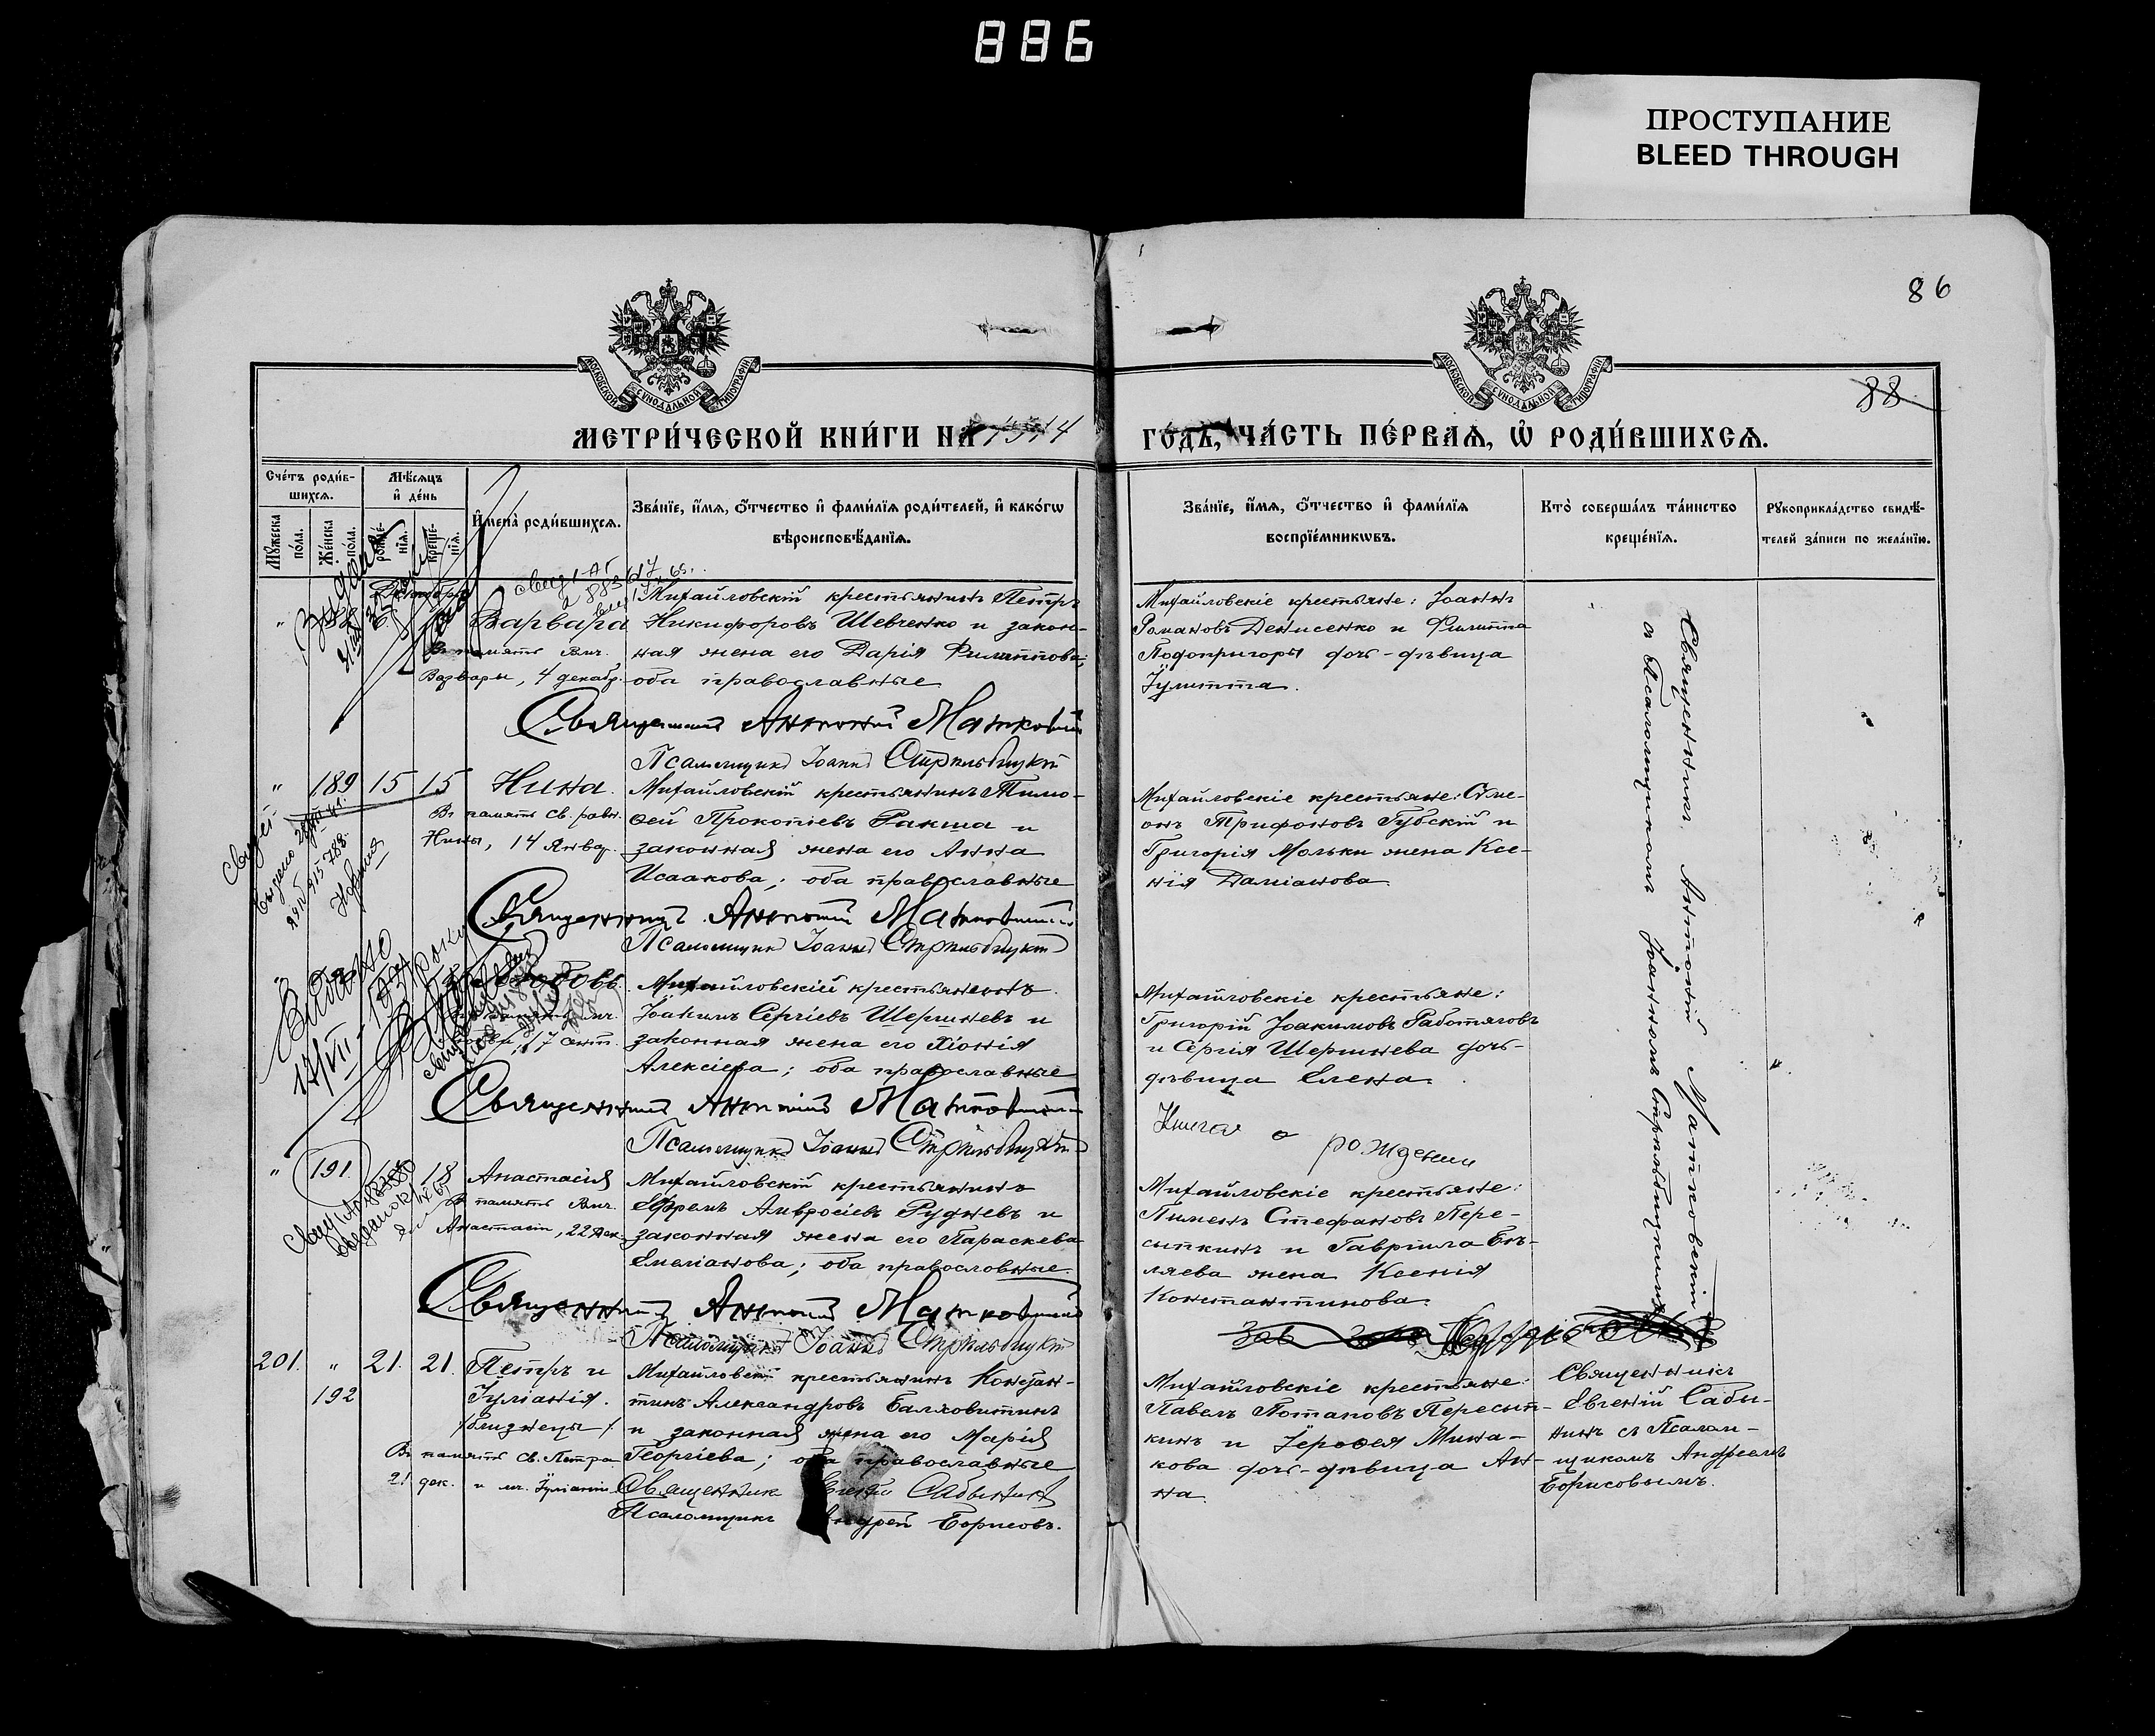 886
ПРОСТУПАНИЕ
BLEED THROUGH
86
88
МОСКОВСКОЙ СУНОДАЛЬНОЙ ТИПОГРАФІИ
МОСКОВСКОЙ СУНОДАЛЬНОЙ ТИПОГРАФІИ
МЕТРИ́ЧЕСКОЙ КНИ́ГИ НА 1914
ГО́ДЪ, ЧА́СТЬ ПЕ́РВАѦ, Ѡ҆ РОДИ́ВШИХСѦ.
Сче́тъ роди́в-
шихсѧ.
Мѣ́сѧцъ
и҆ де́нь
Мꙋ́жеска по́ла.
Же́нска по́ла.
рожде́-
нїѧ.
креще́-
нїѧ.
И҆мена̀ роди́вшихсѧ.
Зва́нїе, и҆́мѧ, ѻ҆́тчество и҆ фами́лїѧ роди́телей, и҆ како́гѡ
вѣроисповѣ́данїѧ.
Зва́нїе, и҆́мѧ, ѻ҆́тчество и҆ фами́лїѧ
воспрїе́мникѡвъ.
Кто̀ соверша́лъ та́инство
креще́нїѧ.
Рꙋкоприкла́дство свидѣ́-
телей за́писи по жела́нїю.
Варвара
Въ память Вмч.
Варвары, 4 декабр.
Михайловскій крестьянинъ Петръ
Никифоровъ Шевченко и закон-
ная жена его Дарія Филиппова;
оба православные
Священникъ Антоній Матковскій
Псаломщикъ Іоаннъ Стрильбицкій
Михайловскіе крестьяне: Іоаннъ
Романовъ Денисенко и Филиппа
Подопригоры дочь-дѣвица
Іулитта.
Священникъ Антоній Матковскій
съ Псаломщикомъ Іоанномъ Стрильбицкимъ
" 189 15 15 Нина.
Въ память св. равн.
Нины, 14 Январ.
Михайловскій крестьянинъ Тимо-
ѳей Прокопіевъ Ракша и
законная жена его Анна
Исаакова; оба православные
Священникъ Антоній Матковскій
Псаломщикъ Іоаннъ Стрильбицкій
Михайловскіе крестьяне: Сѵме-
онъ Трифоновъ Губскій и
Григорія Мольки жена Ксе-
нія Даміанова.
Выдано
17/VII
17 сент.
Михайловскій крестьянинъ
Іоакимъ Сергіевъ Шершневъ и
законная жена его Хіонія
Алексіева; оба православные
Священникъ Антоній Матковскій
Псаломщикъ Іоаннъ Стрильбицкій
Михайловскіе крестьяне:
Григорій Іоакимовъ Работяговъ
и Сергія Шершнева дочь-
дѣвица Елена.
Книга о рождении
" 191 18 Анастасія
Въ память Вмч.
Анастасіи, 22 дек.
Михайловскій крестьянинъ
Ефремъ Амвросіевъ Рудневъ и
законная жена его Параскева
Емеліанова; оба православные.
Священникъ Антоній Матковскій
Псаломщикъ Іоаннъ Стрильбицкій
Михайловскіе крестьяне:
Пименъ Стефановъ Пере-
сыпкинъ и Гавріила Бѣ-
ляева жена Ксенія
Константинова.
201. " 21. 21. Петръ и
192 Іуліанія.
/близнецы/.
Въ память св. Петра
21 дек. и мч. Іуліаніи
Михайловскій крестьянинъ Констан-
тинъ Александровъ Балховитинъ
и законная жена его Марія
Георгіева; оба православные
Священник Евгеній Сабынинъ
Псаломщикъ Андрей Борисовъ.
Михайловскіе крестьяне:
Павелъ Потаповъ Пересып-
кинъ и Іероѳея Мина-
кова дочь-дѣвица Ан-
на.
Священникъ
Евгеній Сабы-
нинъ съ Псалом-
щикомъ Андреемъ
Борисовымъ.